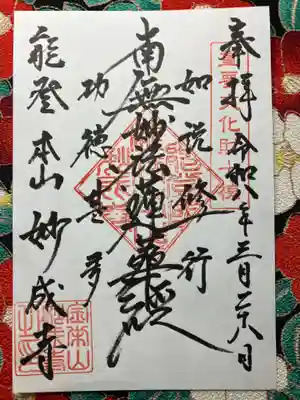 奉拝 令和八年三月二十八日
如説修行
南無妙法蓮華經
功徳甚多
能登本山 妙成寺